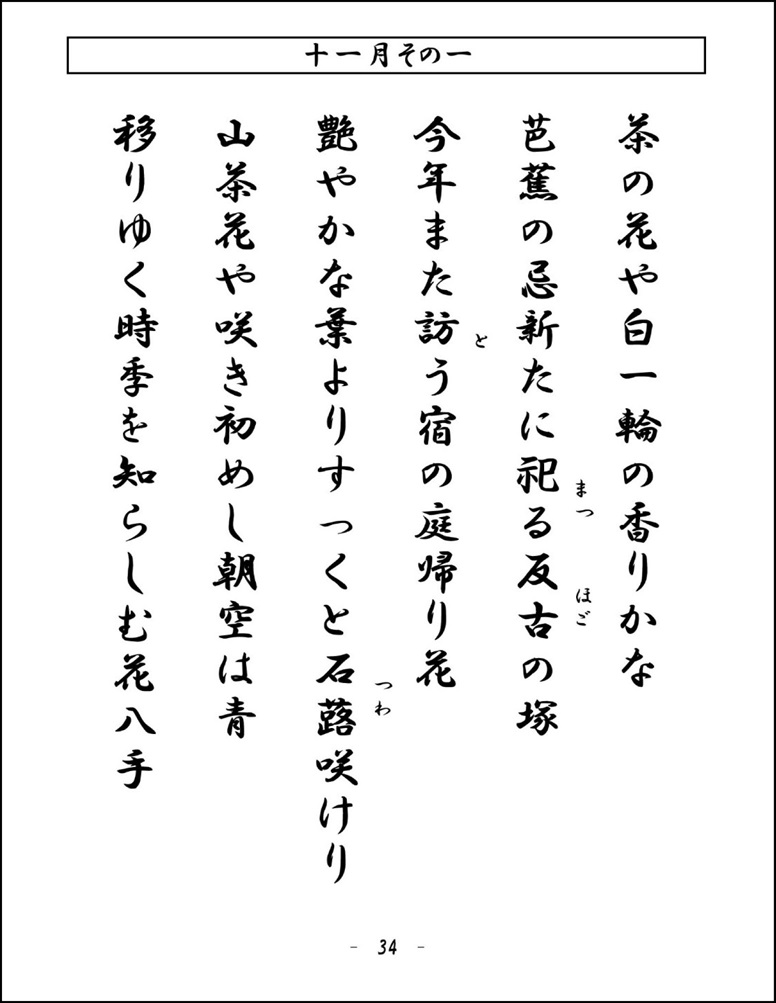 十一月その一
茶の花や白一輪の香りかな
芭蕉の忌新たに祀る反古の塚
まつ
ほご
今年また訪う宿の庭帰り花
と
艶やかな葉よりすっくと石蕗咲けり
つわ
山茶花や咲き初めし朝空は青
移りゆく時季を知らしむ花八手
- 34 -